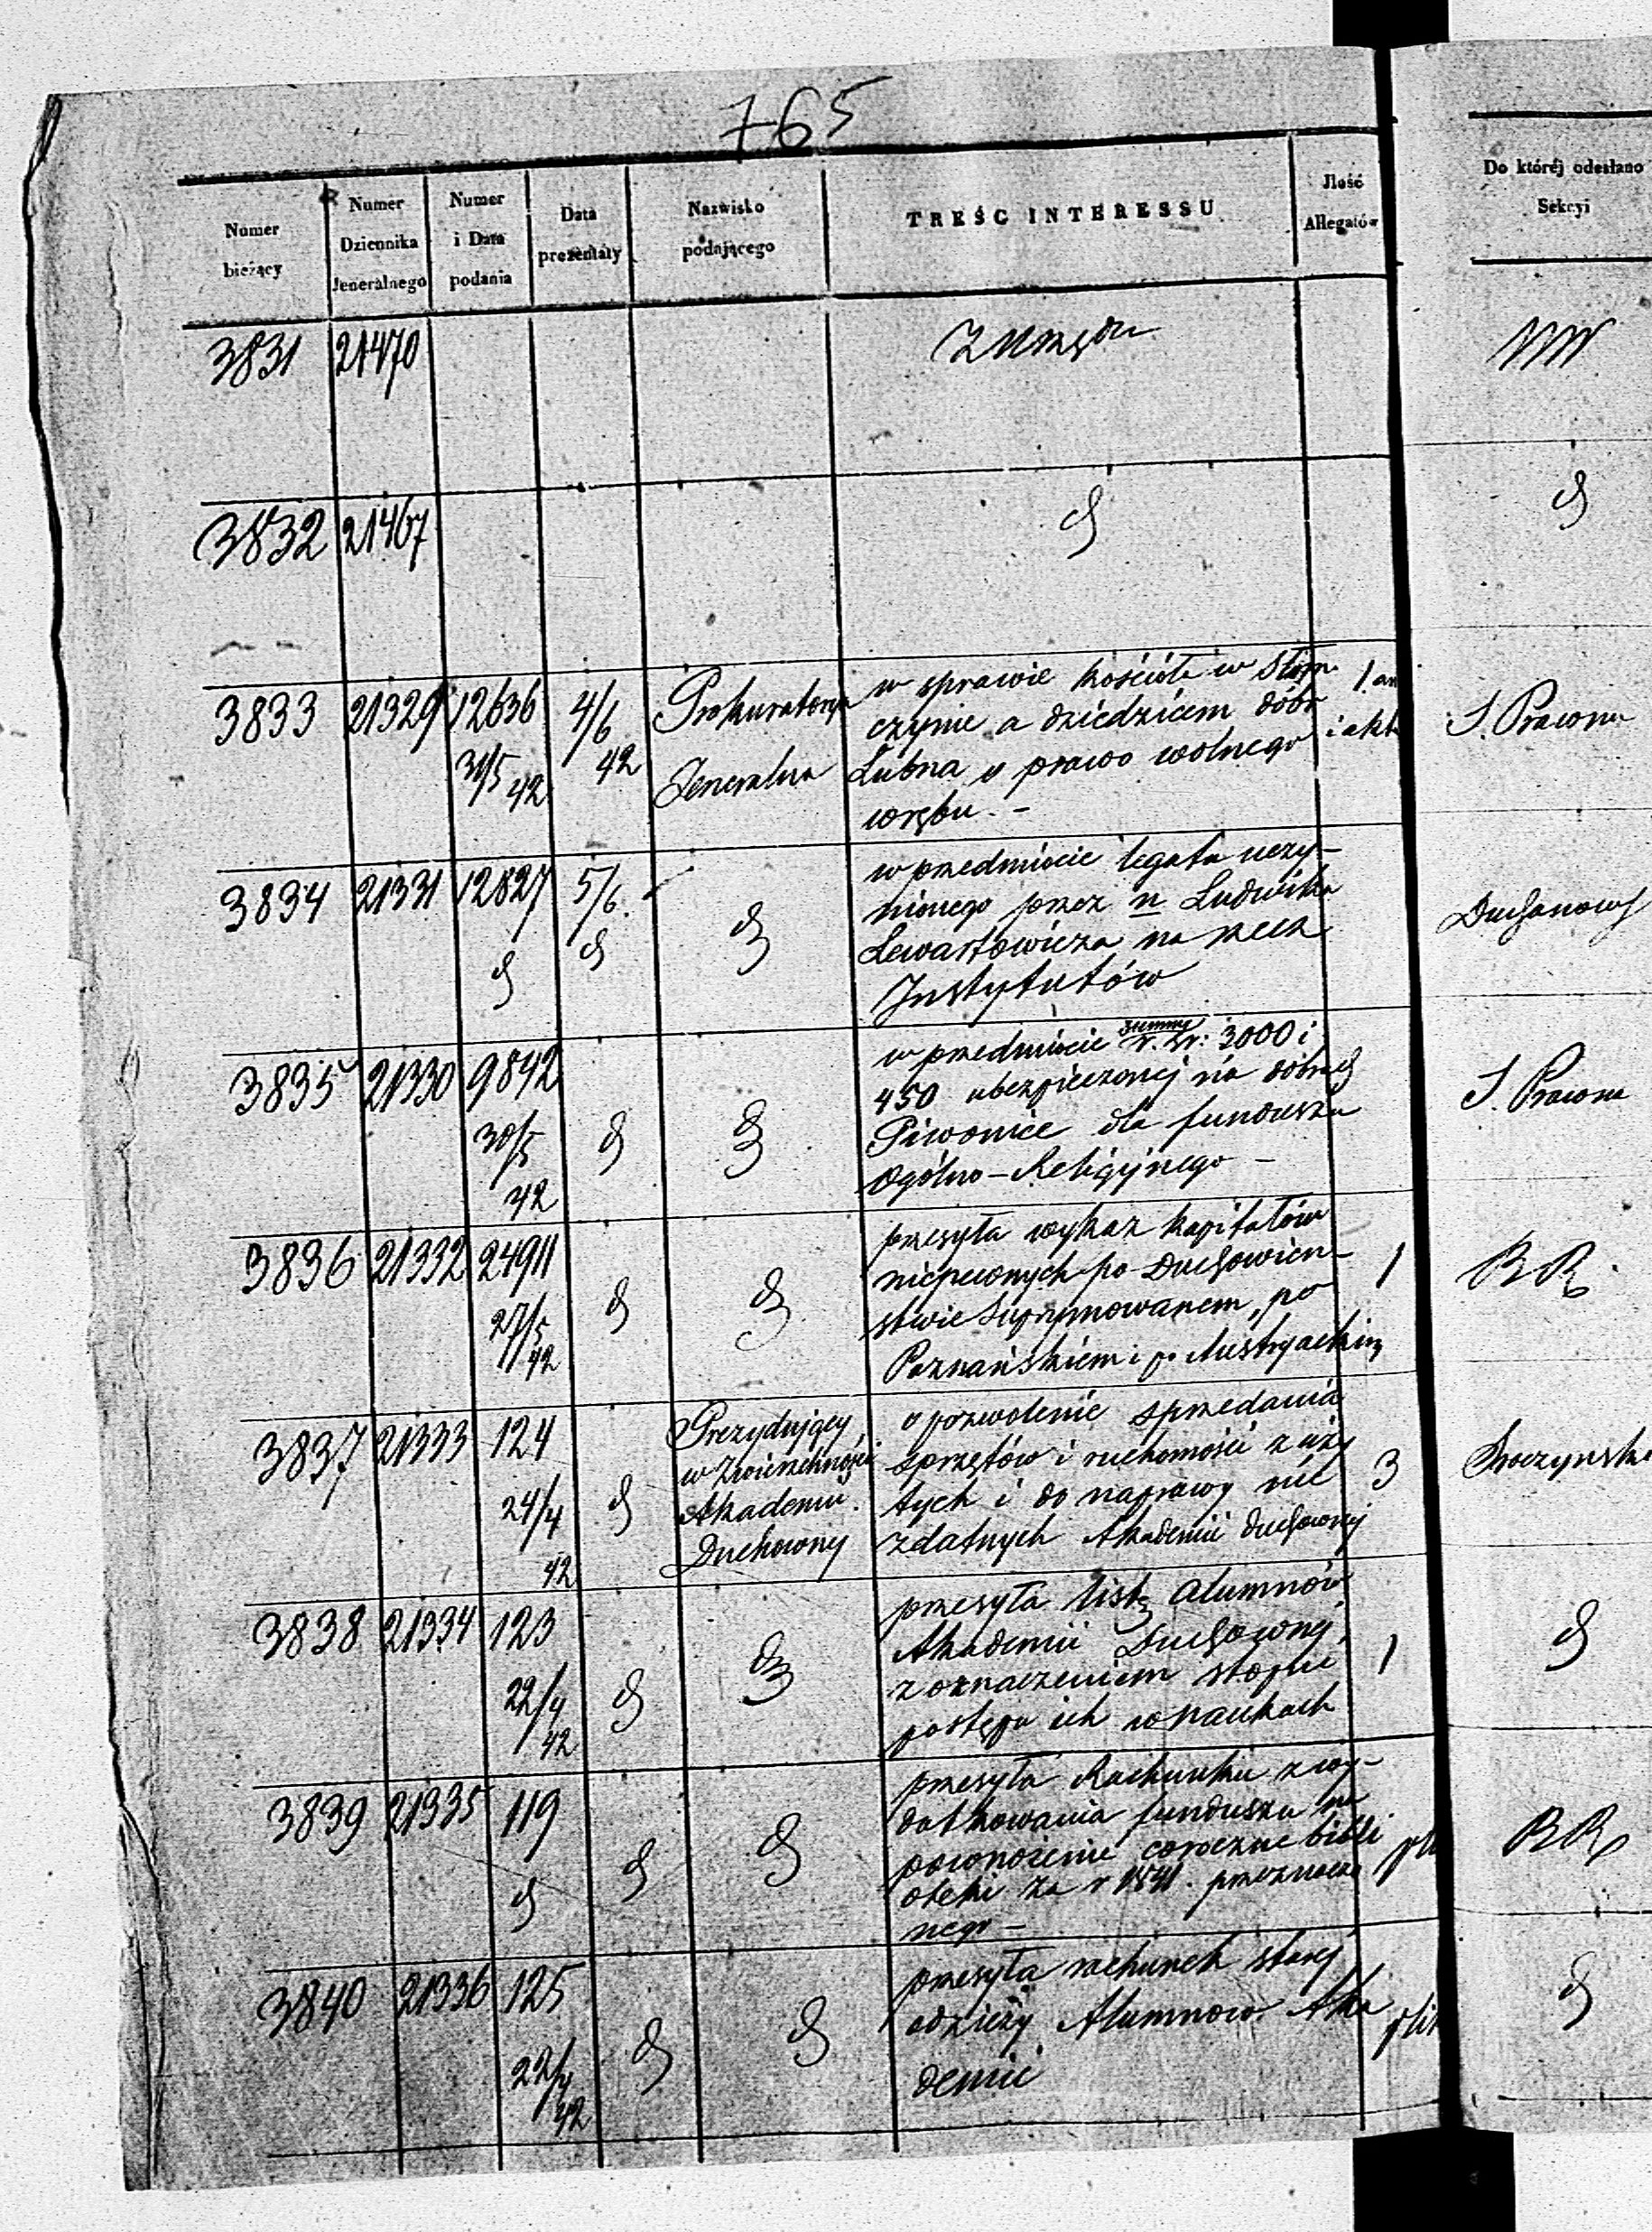 765
Numer bieżący
Numer Dziennika Jeneralnego
Numer i Data podania
Data prezentaty
Nazwisko podającego
TREŚC INTERESSU
Jlość Allegatów
Do któréj odesłano Sekcyi
3831 21470
3832 21467
3833 21329 12636 31/5 42 4/6 42
Prokuratorya
Jeneralna
w sprawie kościoła w Słom
czynie a dziedzicem dóbr
Łubna o prawo wolnego
wrębu. –
1.
i akta
S. Prawna
3834 21331 12827 5/6.
w przedmiocie legatu uczy–
nionego przez n Ludwika
Lewartowicza na rzecz
Instytutów
3835 21330 9842 30/5 42
w przedmiocie summy 3000 i
450 ubezpieczonej na dobrach
Piwonice dla funduszu
Ogólno–Religijnego –
S. Prawna
3836 21332 24911 27/5 42
przesyła wykaz kapitałów
niepewnych po Duchowien–
stwie Supprymowanem, po
Poznańskiem i po Austryackim
1
3837 21333 124 24/4 42
Prezydujący
w Zwierzchności
Akademii
Duchownej
o pozwolenie sprzedania
sprzętów i ruchomości zuży
tych i do naprawy nie
zdatnych Akademii duchownej
3
3838 21334 123 22/4 42
przesyła listę alumnów
Akademii Duchownej,
z oznaczeniem stopnie
postępu ich w naukach
1
3839 21335 119
przesyła Rachunki z wy–
datkowania funduszu na
powiększenie coroczne bibli
oteki za r 1841. przeznaczo
nego –
3840 21336 125 22/4 42
przesyła rachunek starej
odzieży Alumnów Aka
demii